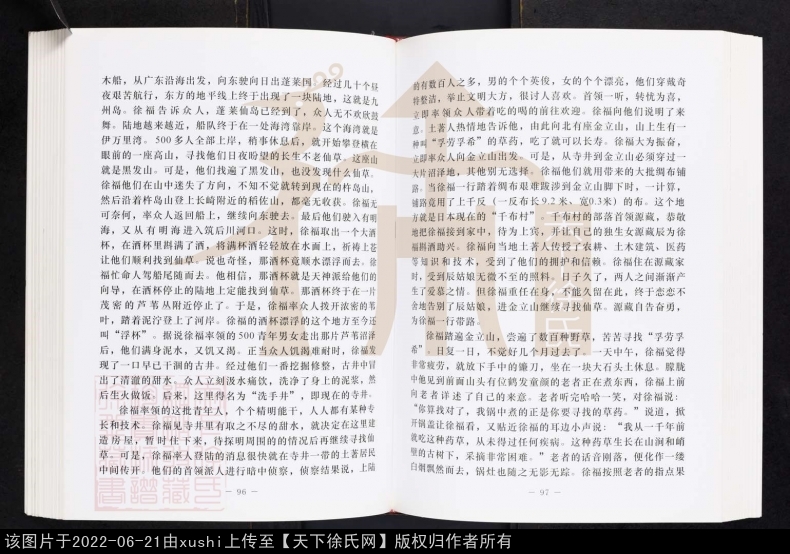 木船，从广东沿海出发，向东驶向日出蓬莱国。经过几十个昼
夜艰苦航行，东方的地平线上终于出现了一块陆地，这就是九
州岛。徐福告诉众人，蓬莱仙岛已经到了，众人无不欢欣鼓
舞。陆地越来越近，船队终于在一处海湾靠岸。这个海湾就是
伊万里湾。500多人全部上岸，稍事休息后，就开始攀登横在
眼前的一座高山，寻找他们日夜盼望的长生不老仙草。这座山
就是黑发山。可是，他们找遍了黑发山，也没发现什么仙草。
徐福他们在山中迷失了方向，不知不觉就转到现在的杵岛山，
然后沿着杵岛山登上长崎附近的稲佐山，都毫无收获。徐福无
可奈何，率众人返回船上，继续向东驶去。最后他们驶入有明
海，又从有明海进入筑后川河口。这时，徐福取出一个大酒
杯，在酒杯里斟满了酒，将满杯酒轻轻放在水面上，祈祷上苍
让他们顺利找到仙草。说也奇怪，那酒杯竟顺水漂浮而去。徐
福忙命人驾船尾随而去。他相信，那酒杯就是天神派给他们的
向导，在酒杯停止的陆地上定能找到仙草。那酒杯终于在一片
茂密的芦苇丛附近停止了。于是，徐福率众人拨开浓密的苇
叶，踏着泥泞登上了河岸。徐福的酒杯漂浮的这个地方至今还
叫“浮杯”。据说徐福率领的500青年男女走出那片芦苇沼泽
后，他们满身泥水，又饥又渴。正当众人饥渴难耐时，徐福发
现了一口早已干涸的古井。经过他们一番挖掘修整，古井中冒
出了清澈的甜水，众人立刻汲水痛饮，洗净了身上的泥浆，然
后生火做饭。后来，这里得名为“洗手井”，即现在的寺井。
徐福率领的这批青年人，个个精明能干，人人都有某种专
长和技术。徐福见寺井里有取之不尽的甜水，就决定在这里建
造房屋，暂时住下来，待探明周围的的情况后再继续寻找仙
草。可是，徐福率人登陆的消息很快就在寺井一带的土著居民
中间传开。他们的首领派人进行暗中侦察，侦察结果说，上陆
— 96 —
的有数百人之多，男的个个英俊，女的个个漂亮，他们穿戴奇
特整洁，举止文明大方，很讨人喜欢。首领一听，转忧为喜，
立即率领众人带着吃的喝的前往欢迎。徐福向他们说明了来
意。土著人热情地告诉他，由此向北有座金立山，山上生有一
种叫“孚劳孚希”的草药，吃了就可以长寿。徐福大为振奋，
立即率众人向金立山出发。可是，从寺井到金立山必须穿过一
大片沼泽地，其他别无选择。徐福他们就用带来的大批绸布铺
路。当徐福一行踏着绸布艰难跋涉到金立山脚下时，一计算，
铺路竟用了上千反（一反布长9.2米、宽0.3米）的布。这个地
方就是日本现在的“千布村”。千布村的部落首领源藏，恭敬
地把徐福接到家中，待为上宾，并让自己的独生女源藏辰为徐
福斟酒助兴。徐福向当地土著人传授了农耕、土木建筑、医药
等知识和技术，受到了他们的拥护和信赖。徐福住在源藏家
时，受到辰姑娘无微不至的照料。日子久了，两人之间渐渐产
生了爱慕之情。但徐福重任在身，不能久留在此，终于恋恋不
舍地告别了辰姑娘，进金立山继续寻找仙草。源藏自告奋勇，
为徐福一行带路。
徐福踏遍金立山，尝遍了数百种野草，苦苦寻找“孚劳孚
希”。日复一日，不觉好几个月过去了。一天中午，徐福觉得
非常疲劳，就放下手中的镰刀，坐在一块大石头上休息。朦胧
中他见到前面山头有位鹤发童颜的老者正在煮东西，徐福上前
向老者详述了自己的来意。老者听完哈哈一笑，对徐福说：
“你算找对了，我锅中煮的正是你要寻找的草药。”说道，掀
开锅盖让徐福看，又贴近徐福的耳边小声说：“我从一千年前
就吃这种药草，从未得过任何疾病。这种药草生长在山涧和峭
壁的古树下，采摘非常困难。”老者的话音刚落，便化作一缕
白烟飘然而去，锅灶也随之无影无踪。徐福按照老者的指点果
— 97 —
该图片于2022-06-21由xushi上传至【天下徐氏网】版权归作者所有